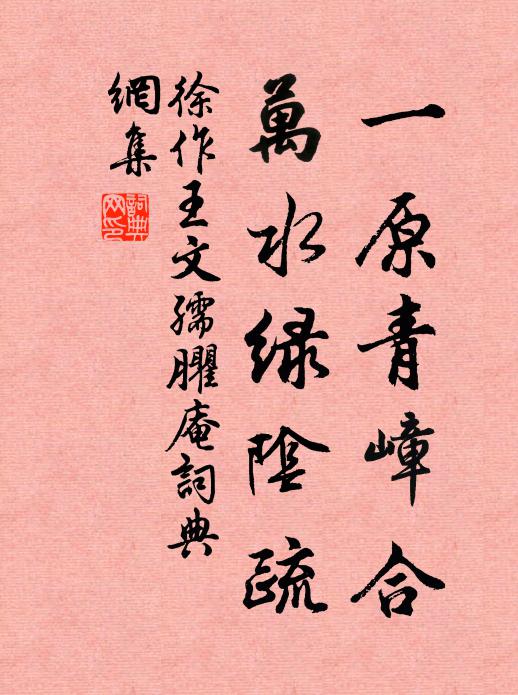 一原青嶂合
萬水绿陰疏
徐作王文孺臞庵詞典
網集
詞典网印